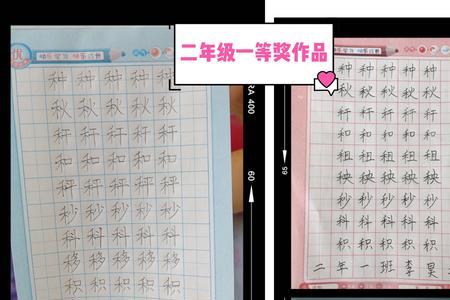 二年级一等奖作品
优
快乐学习
种 种 种 种 种
秋 秋 秋 秋 秋
秆 秆 秆 秆 秆
和 和 和 和 和
秤 秤 秤 秤 秤
秒 秒 秒 秒 秒
科 科 科 科 科
移 移 移 移 移
积 积 积 积 积
RA 400
60
65
快乐学习
种 种 种 种 种
秋 秋 秋 秋 秋
秆 秆 秆 秆 秆
和 和 和 和 和
租 租 租 租 租
秧 秧 秧 秧 秧
秒 秒 秒 秒 秒
科 科 科 科 科
积 积 积 积 积
二年一班李昊